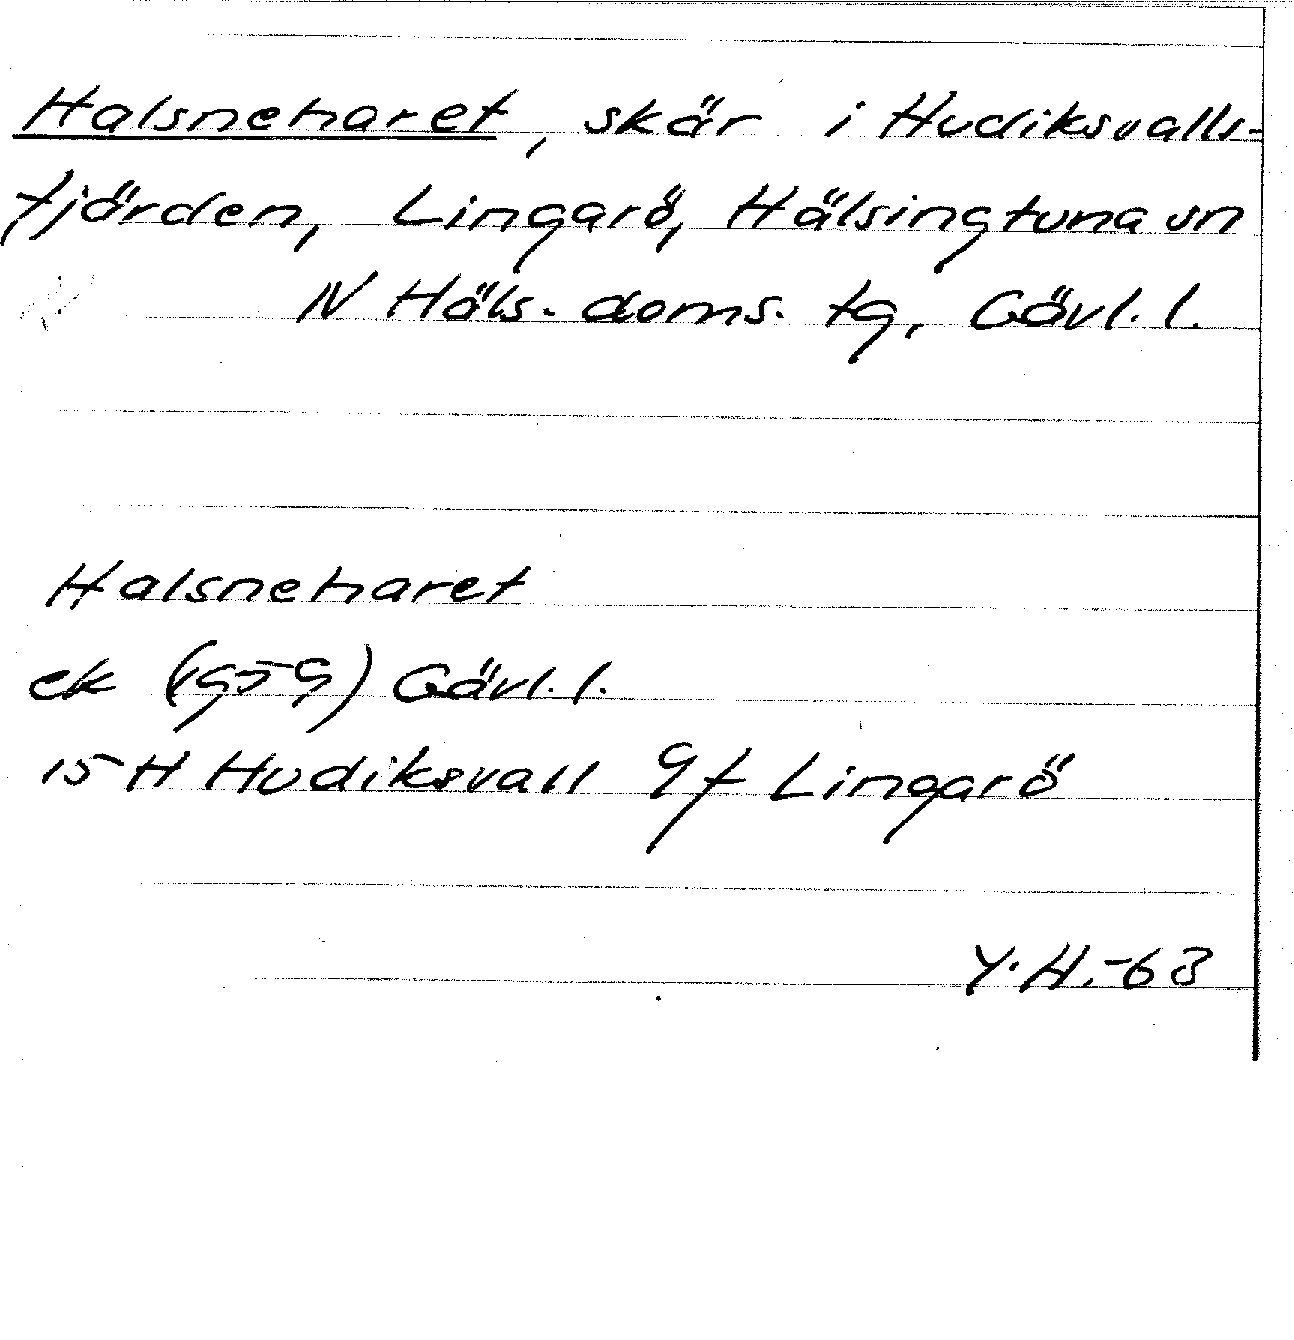 Halsneharet, skär i Hudiksvalls-
fjärden, Lingarö, Hälsingtuna sn
N Häls. doms. tg, Gävl. l.
Halsneharet
ek (1959) Gävl. l.
15 H Hudiksvall 9 f Lingarö
Y. H. -63